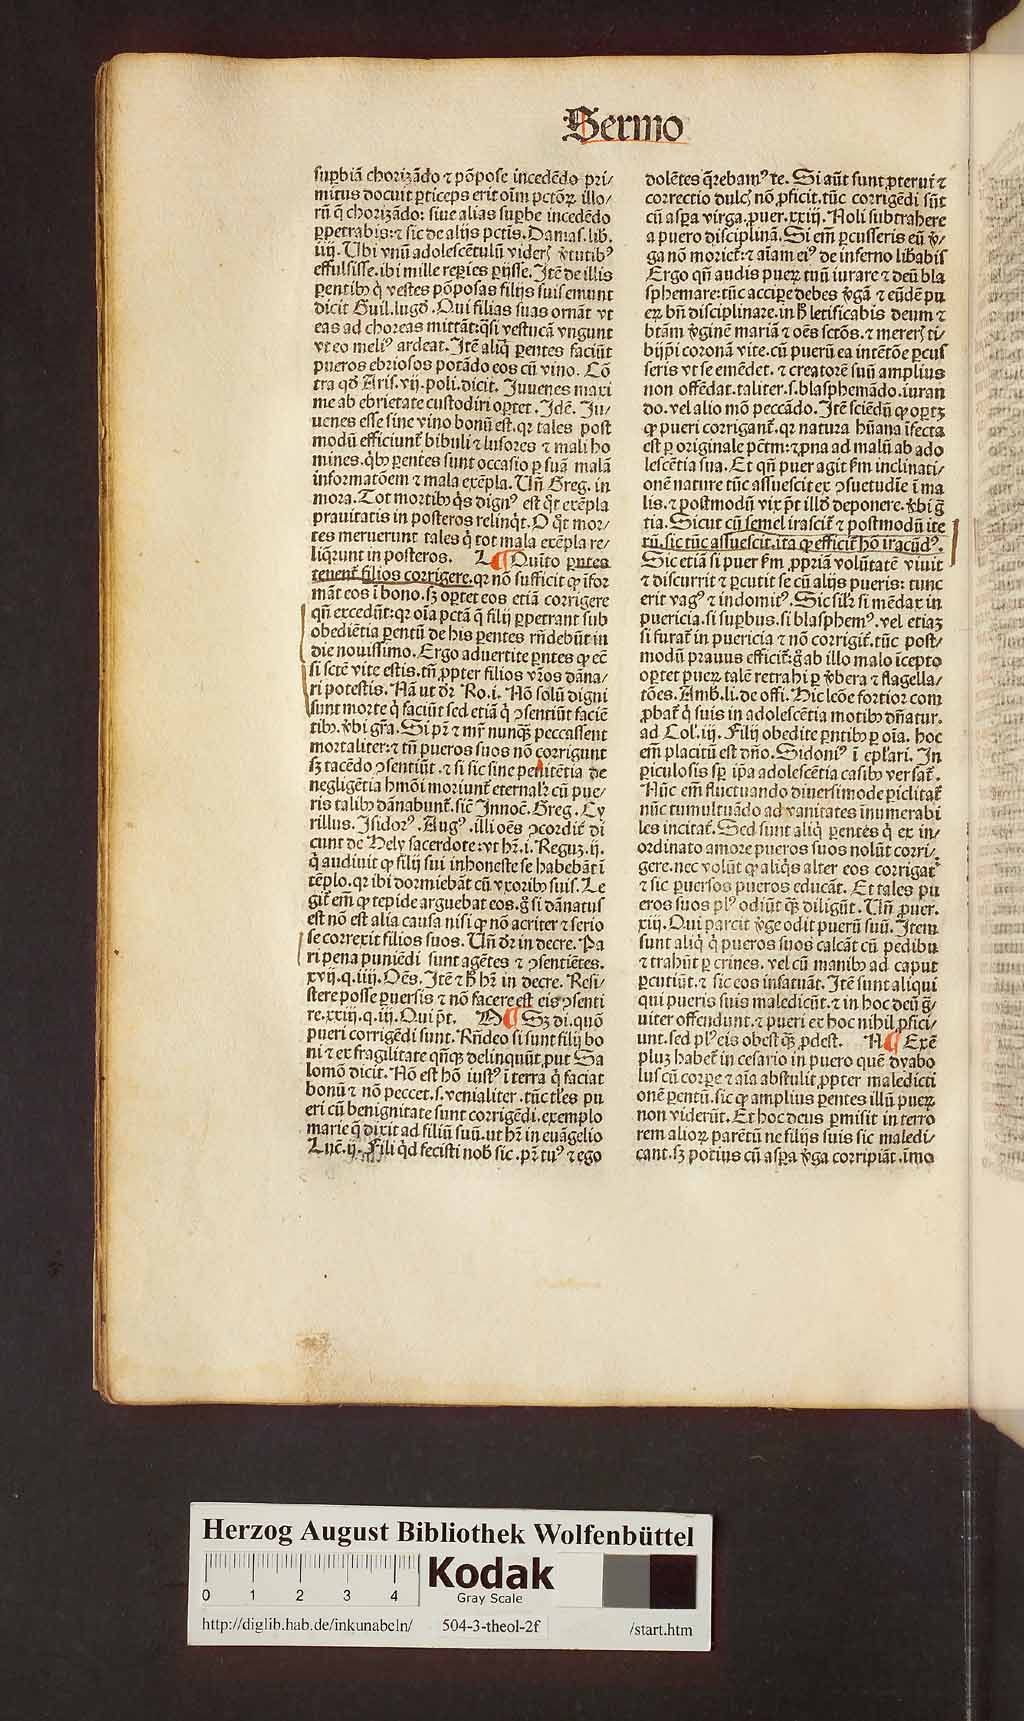 Sermo
suꝑbiā chorizādo ⁊ pōpose incedēdo pri⸗
mitus docuit ꝑticeps erit oīm pctōꝝ illo⸗
rū q̄ chorizādo: siue alias suꝑbe incedēdo
ꝑpetrabis: ⁊ sic de alijs pctis. Damas. lib.
iiij. Ubi vnū adolescētulū viderꝭ v̓tutibꝰ
effulsisse. ibi mille reꝑies ꝑijsse. Itē de illis
ꝑentibꝰ q̇ vestes pōposas filijs suis emunt
dicit Guil. lugd̄. Qui filias suas ornāt vt
eas ad choreas mittāt: q̄si vestucā vngunt
vt eo meliꝰ ardeat. Itē aliq̇ ꝑentes faciūt
pueros ebriosos potādo eos cū vino. Cō
tra qd̄ Aris. vij. poli. dicit. Juuenes maxi
me ab ebrietate custodiri oꝑtet. Idē. Ju⸗
uenes esse sine vino bonū est. qꝛ tales post
modū efficiunt̄ bibuli ⁊ lusores ⁊ mali ho
mines. q̇bꝰ ꝑentes sunt occasio ꝑ suā malā
informatōem ⁊ mala exēpla. Uñ Greg. in
mora. Tot mortibꝰ q̇s dignꝰ est q̇t exēpla
prauitatis in posteros relinq̇t. O q̇t mor⸗
tes meruerunt tales q̇ tot mala exēpla re⸗
liq̄runt in posteros. L ¶ Quīto ꝑntes
tenent̄ filios corrigere. qꝛ nō sufficit ꝙ īfor
māt eos ī bono. sꝫ oꝑtet eos etiā corrigere
qñ excedūt: qꝛ oīa pctā q̄ filij ꝑpetrant sub
obediētia ꝑentū de his ꝑentes rñdebūt in
die nouissimo. Ergo aduertite ꝑntes ꝙ ec̄
si sctē vite estis. tñ ꝓpter filios vr̄os dāna⸗
ri potestis. Nā ut dr̄ Ro. i. Nō solū digni
sunt morte q̇ faciūt sed etiā q̇ ɔsentiūt faciē
tibꝰ. v̓bi gr̄a. Si pr̄ ⁊ mr̄ nunqꝫ peccassent
mortaliter: ⁊ tñ pueros suos nō corrigunt
sꝫ tacēdo ɔsentiūt. ⁊ si sic sine penitētia de
negligētia hmōi moriunt̄ eternalr̄ cū pue⸗
ris talibꝰ dānabunt̄. sic̄ Innoc̄. Greg. Cy
rillus. Isidorꝰ. Augꝰ. illi oēs ɔcordit̄ di
cunt de Hely sacerdote: vt hr̄. i. Reguꝫ. ij.
q̇ audiuit ꝙ filij sui inhoneste se habebāt ī
tēplo. qꝛ ibi dormiebāt cū vxoribꝰ suis. Le
git̄ em̄ ꝙ tepide arguebat eos. g̊ si dānatus
est nō est alia causa nisi ꝙ nō acriter ⁊ serio
se correxit filios suos. Uñ dr̄ in decre. Pa
ri pena puniēdi sunt agētes ⁊ ɔsentiētes.
xvij. q. iiij. Oēs. Itē ⁊ h̄ hr̄ in decre. Resi⸗
stere posse ꝑuersis ⁊ nō facere est eis ɔsenti
re. xxiij. q. iij. Qui pt̄. M ¶ Sꝫ di. quō
pueri corrigēdi sunt. Rñdeo si sunt filij bo
ni ⁊ ex fragilitate qñqꝫ delinquūt. ꝓut Sa
lomō dicit. Nō est hō iustꝰ ī terra q̇ faciat
bonū ⁊ nō peccet. s. venialiter. tūc tles pu
eri cū benignitate sunt corrigēdi. exemplo
marie q̄ dixit ad filiū suū. ut hr̄ in euāgelio
Luc̄. ij. Fili q̇d fecisti nob̄ sic. pr̄ tuꝰ ⁊ ego
dolētes q̄rebamꝰ te. Si aūt sunt ꝓterui ⁊
correctio dulcꝭ nō ꝓficit. tūc corrigēdi sūt
cū aspa virga. ꝓuer. xxiij. Noli subtrahere
a puero disciplinā. Si em̄ ꝑcusseris eū v̓⸗
ga nō moriet̄: ⁊ aīam eiꝰ de inferno lib̓abis
Ergo qñ audis pueꝝ tuū iurare ⁊ deū bla
sphemare: tūc acciꝑe debes v̓gā ⁊ eūdē pu
eꝝ bñ disciplinare. in h̄ letificabis deum ⁊
btām v̓ginē mariā ⁊ oēs sctōs. ⁊ mererꝭ ti⸗
bijp̄i coronā vite. cū puerū ea intētōe ꝑcus
seris vt se emēdet. ⁊ creatorē suū amplius
non offēdat. taliter. s. blasphemādo. iuran
do. vel alio mō peccādo. Itē sciēdū ꝙ oꝑtꝫ
ꝙ pueri corrigant̄. qꝛ natura hūana īfecta
est ꝑ originale pctm̄: ⁊ ꝓna ad malū ab ado
lescētia sua. Et qñ puer agit ẜm inclinati⸗
onē nature tūc assuescit ex ɔsuetudīe ī ma
lis. ⁊ postmodū vix pt̄ illō deponere. v̓bi ḡ
tia. Sicut cū semel irascit̄ ⁊ postmodū ite
rū. sic tūc assuescit. ita ꝙ efficit̄ hō iracūdꝰ.
Sic etiā si puer ẜm ꝓpriā volūtatē viuit
⁊ discurrit ⁊ ꝑcutit se cū alijs pueris: tunc
erit vagꝰ ⁊ indomitꝰ. Sic silr̄ si mēdax in
puericia. si suꝑbus. si blasphemꝰ. vel etiaꝫ
si furat̄ in puericia ⁊ nō corrigit̄. tūc post⸗
modū prauus efficit̄: g̊ ab illo malo īcepto
oꝑtet pueꝝ talē retrahi ꝑ v̓bera ⁊ flagella⸗
tōes. Amb̄. li. de offi. Hic leōe fortior com
ꝓbat̄ q̇ suis in adolescētia motibꝰ dñatur.
ad Colꝰ. iij. Filij obedite ꝑntibꝰ ꝑ oīa. hoc
em̄ placitū est dño. Sidoniꝰ ī epl̄ari. In
ꝑiculosis sꝑ ip̄a adolescētia casibꝰ versat̄.
Nūc em̄ fluctuando diuersimode ꝑiclitat̄
nūc tumultuādo ad vanitates inumerabi
les incitat̄. Sed sunt aliq̇ ꝑentes q̇ ex in⸗
ordinato amore pueros suos nolūt corri⸗
gere. nec volūt ꝙ aliq̇s alter eos corrigat
⁊ sic ꝑuersos pueros educāt. Et tales pu
eros suos plꝰ odiūt qꝫ diligūt. Uñ ꝓuer.
xiij. Qui parcit v̓ge odit puerū suū. Item
sunt aliq̇ q̇ pueros suos calcāt cū pedibꝰ
⁊ trahūt ꝑ crines. vel cū manibꝰ ad caput
ꝑcutiūt. ⁊ sic eos infatuāt. Itē sunt aliqui
qui pueris suis maledicūt. ⁊ in hoc deū g̊⸗
uiter offendunt. ⁊ pueri ex hoc nihil ꝓfici⸗
unt. sed plꝰ eis obest qꝫ ꝓdest. N ¶ Exē
pluꝫ habet̄ in cesario in puero quē dyabo
lus cū corꝑe ⁊ aīa abstulit ꝓpter maledicti
onē ꝑentū. sic ꝙ amplius ꝑentes illū pueꝝ
non viderūt. Et hoc deus ꝑmisit in terro
rem alioꝝ parētū ne filijs suis sic maledi⸗
cant. sꝫ potius cū aspa v̓ga corripiāt. īmo
Herzog August Bibliothek Wolfenbüttel
0 1 2 3 4
Kodak
Gray Scale
http://diglib.hab.de/inkunabeln/ 504-3-theol-2f /start.htm